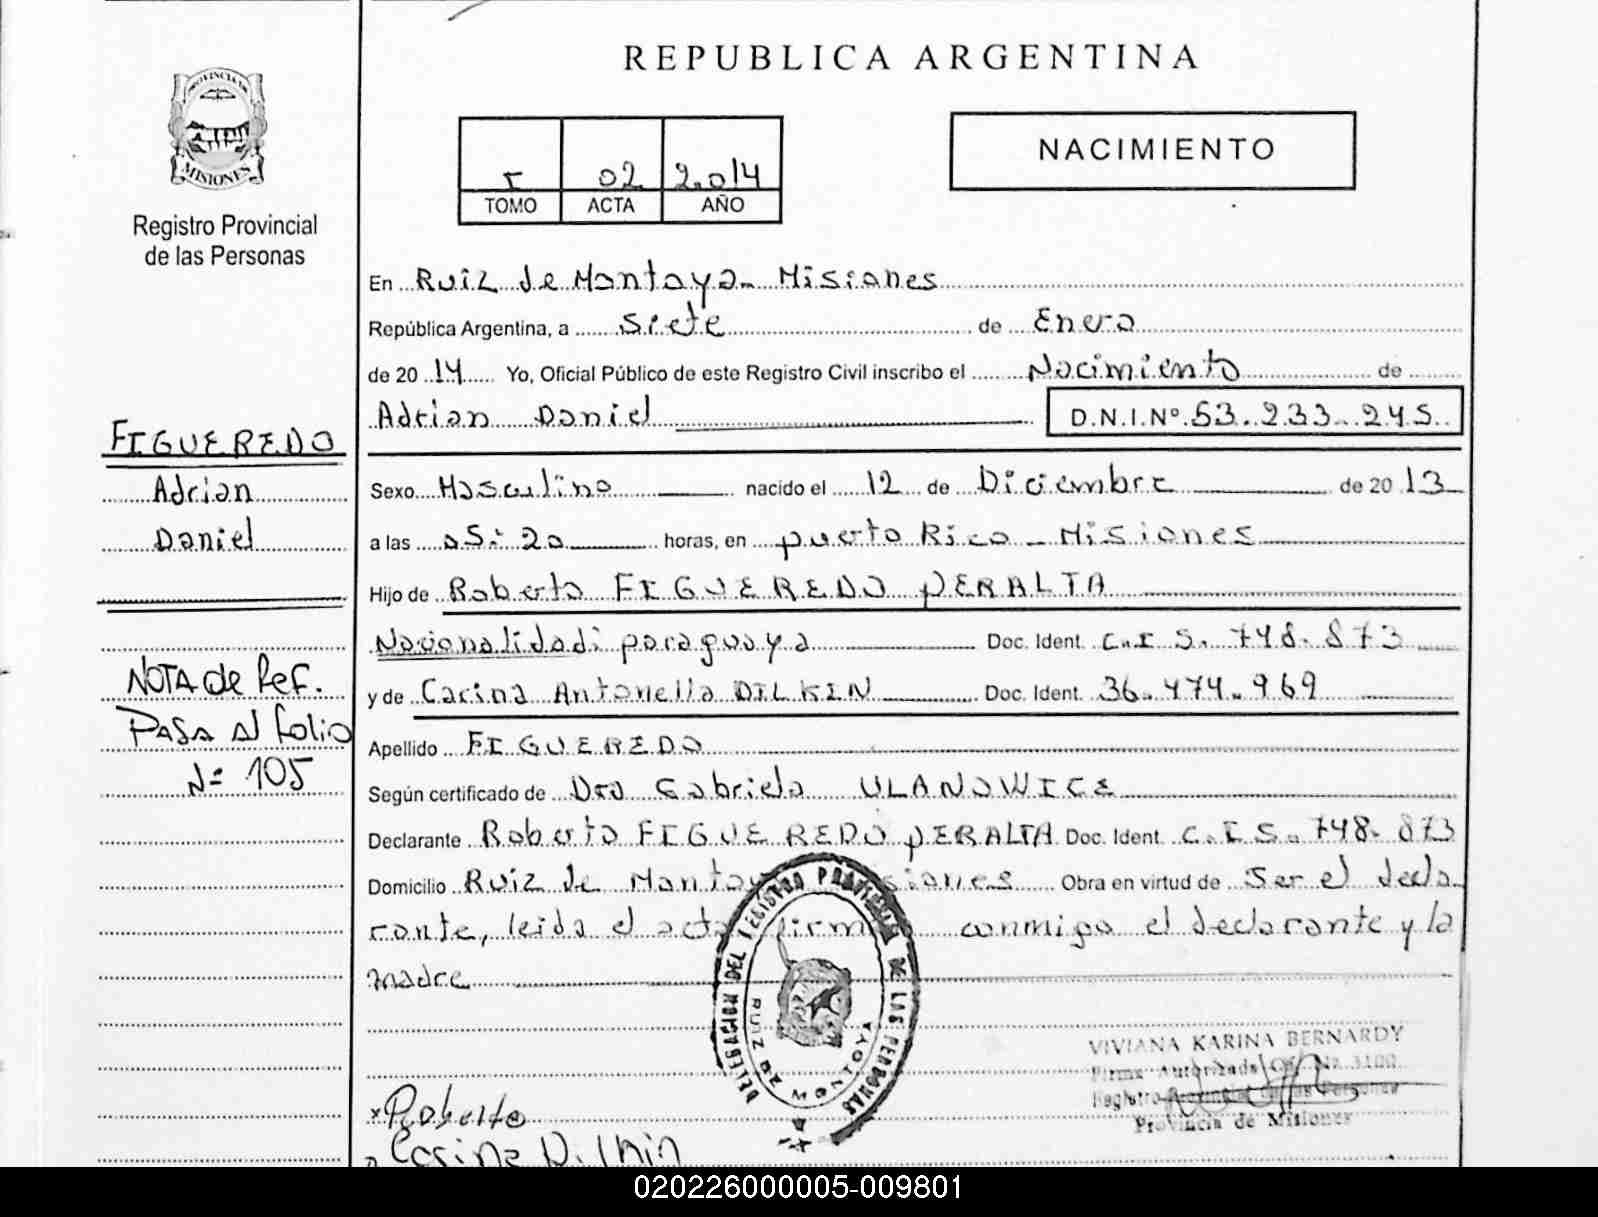 REPUBLICA ARGENTINA
PROVINCIA DE
MISIONES
Registro Provincial
de las Personas
I 02 2.014
TOMO ACTA AÑO
NACIMIENTO
En Ruiz de Montoya - Misiones
República Argentina, a siete de Enero
de 2014 Yo, Oficial Público de este Registro Civil inscribo el Nacimiento de
Adrian Daniel D.N.I.Nº 53.233.245
FIGUEREDO
Adrian
Daniel
Sexo Masculino nacido el 12 de Diciembre de 2013
a las 05:20 horas, en puerto Rico - Misiones
Hijo de Roberto FIGUEREDO PERALTA
Nacionalidad: paraguaya Doc. Ident. C.I 5.748.873
y de Carina Antonella DILKIN Doc. Ident. 36.474.969
NOTA de Ref.
PASA Al folio
Nº 105
Apellido FIGUEREDO
Según certificado de Dra Gabriela ULANOWICZ
Declarante Roberto FIGUEREDO PERALTA Doc. Ident. C.I 5.748.873
Domicilio Ruiz de Montoya Misiones Obra en virtud de Ser el decla
rante, leida el acta firman conmigo el declarante y la
madre
DELEGACION DEL REGISTRO PROVINCIAL DE LAS PERSONAS
RUIZ DE MONTOYA
VIVIANA KARINA BERNARDY
Firma Autorizada
Registro Provincial de las Personas
Provincia de Misiones
x Roberto
Carina Dilkin
020226000005-009801